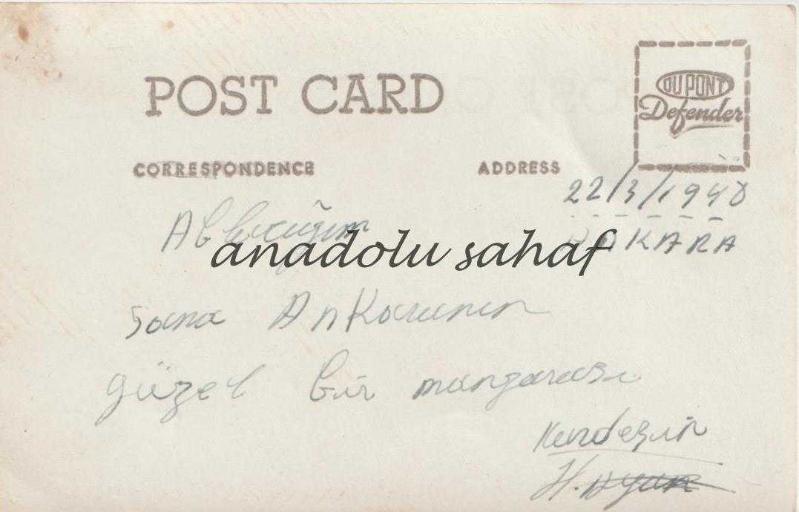 POST CARD
DU PONT
Defender
CORRESPONDENCE
ADDRESS
22/3/1948
ANKARA
Ablacığım
anadolu sahaf
sana Ankaranın
güzel bir manzarası
Kardeşin
H.